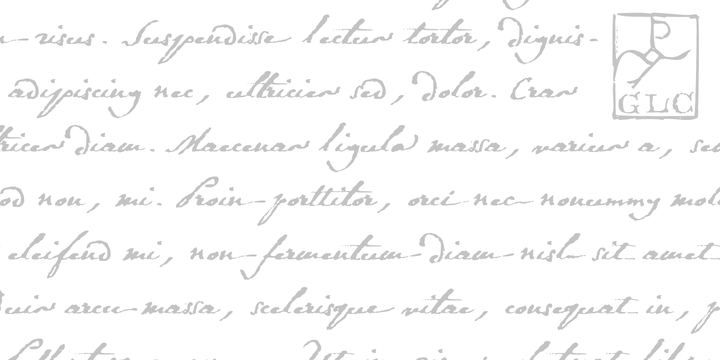 risus. Suspendisse lectus tortor, dignis-
GLC
adipiscing nec, ultricies sed, dolor. Cras
diam. Maecenas ligula massa, varius a,
non, mi. Proin porttitor, orci nec nonummy
eleifend mi, non fermentum diam nisl sit amet
arcu massa, scelerisque vitae, consequat in,